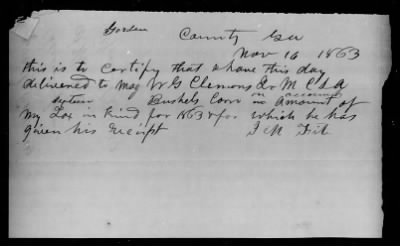 Gordon County Geo
Nov 16 1863
this is to certify that I have this day
delivered to Maj W G Clemons Qr M CSA
sixteen Bushels Corn on account in Amount of
My Tax in Kind for 1863 & for which he has
given his receipt J M